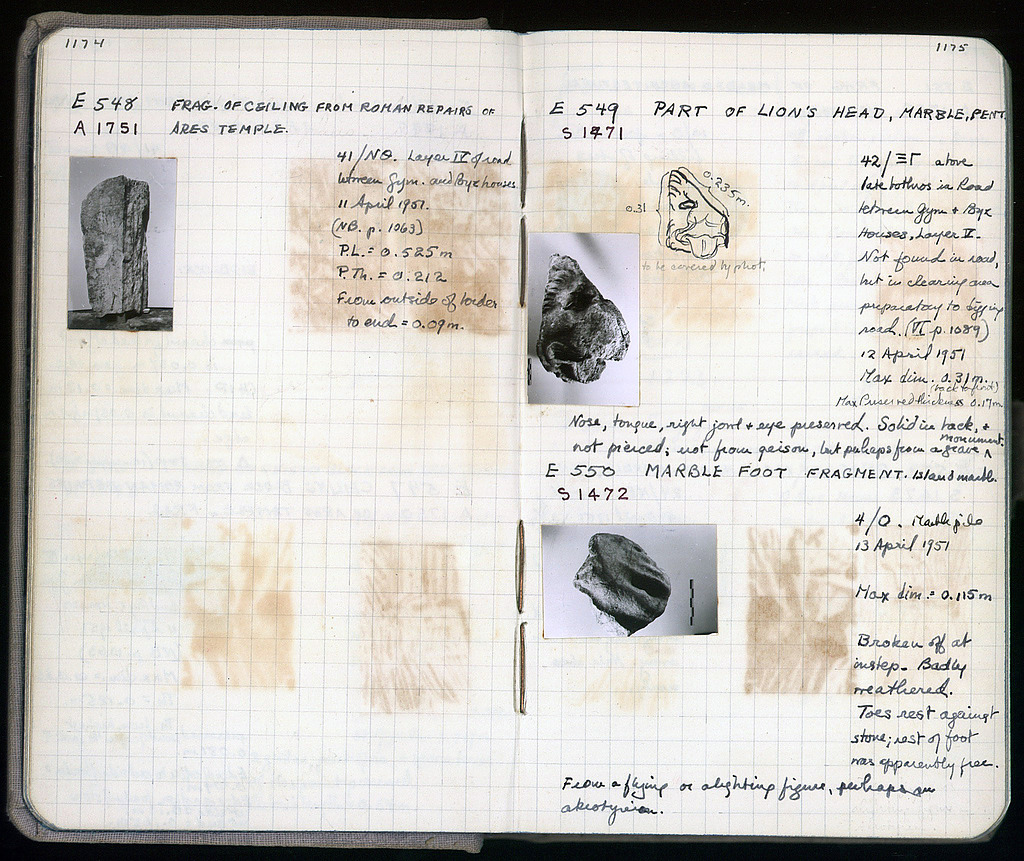 1174
E 548 FRAG. OF CEILING FROM ROMAN REPAIRS OF
A 1751 ARES TEMPLE.
41/ΝΘ. Layer IV of road
between Gym. and Byz houses
11 April 1951.
(NB. p. 1063)
P.L. = 0.525 m
P.Th. = 0.212
From outside of border
to end = 0.09m.
1175
E 549 PART OF LION'S HEAD, MARBLE, PENT.
S 1471
42/ΞΓ above
late bothros in Road
between Gym + Byz
Houses, Layer V.
Not found in road,
but in clearing area
preparatory to digging
road. (VI p. 1089)
12 April 1951
Max dim. 0.31m.
(back to front)
Max Preserved thickness 0.17m.
0.235m.
0.31
to be covered by phot.
Nose, tongue, right jowl + eye preserved. Solid in back, +
not pierced; not from geison, but perhaps from a grave monument.
E 550 MARBLE FOOT FRAGMENT. Island marble.
S 1472
4/Ο. Marble pile
13 April 1951
Max dim. = 0.115m
Broken off at
instep. Badly
weathered.
Toes rest against
stone; rest of foot
was apparently free.
From a flying or alighting figure, perhaps an
akroterion.